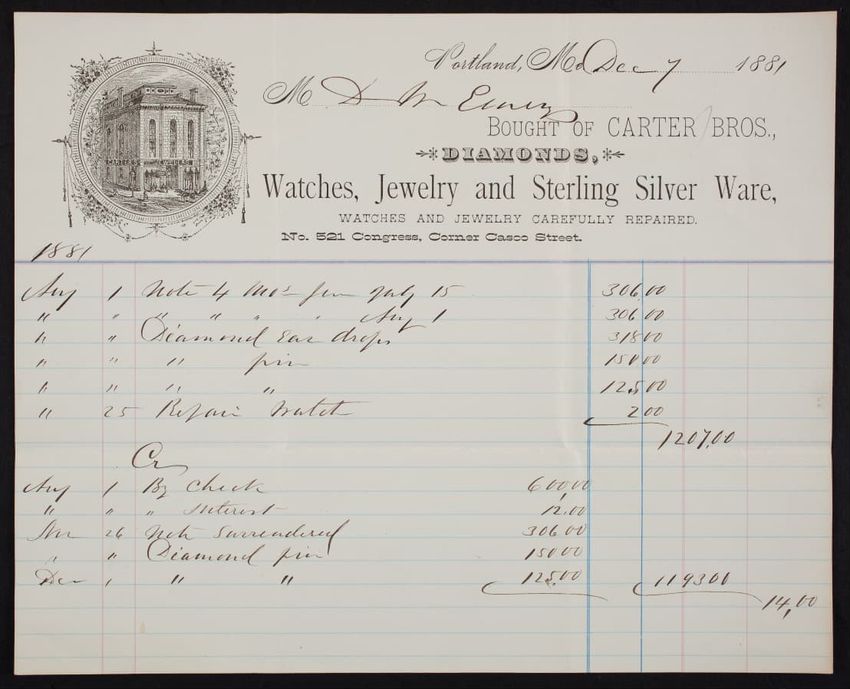 Portland, Me Dec 7 1881
M D W Emery
BOUGHT OF CARTER BROS.,
DIAMONDS,
Watches, Jewelry and Sterling Silver Ware,
WATCHES AND JEWELRY CAREFULLY REPAIRED.
No. 521 Congress, Corner Casco Street.
CARTER'S JEWELERS
1881
Aug 1 Note 4 mos from July 15 306.00
" " " " " " Aug 1 306.00
" " Diamond Ear drops 318.00
" " " pin 150.00
" " " " 125.00
" 25 Repair Watch 2.00
1207.00
Cr
Aug 1 By Check 600.00
" " " Interest 12.00
Nov 26 Note Surrendered 306.00
" " Diamond pin 150.00
Dec 1 " " 125.00 1193.00
14.00